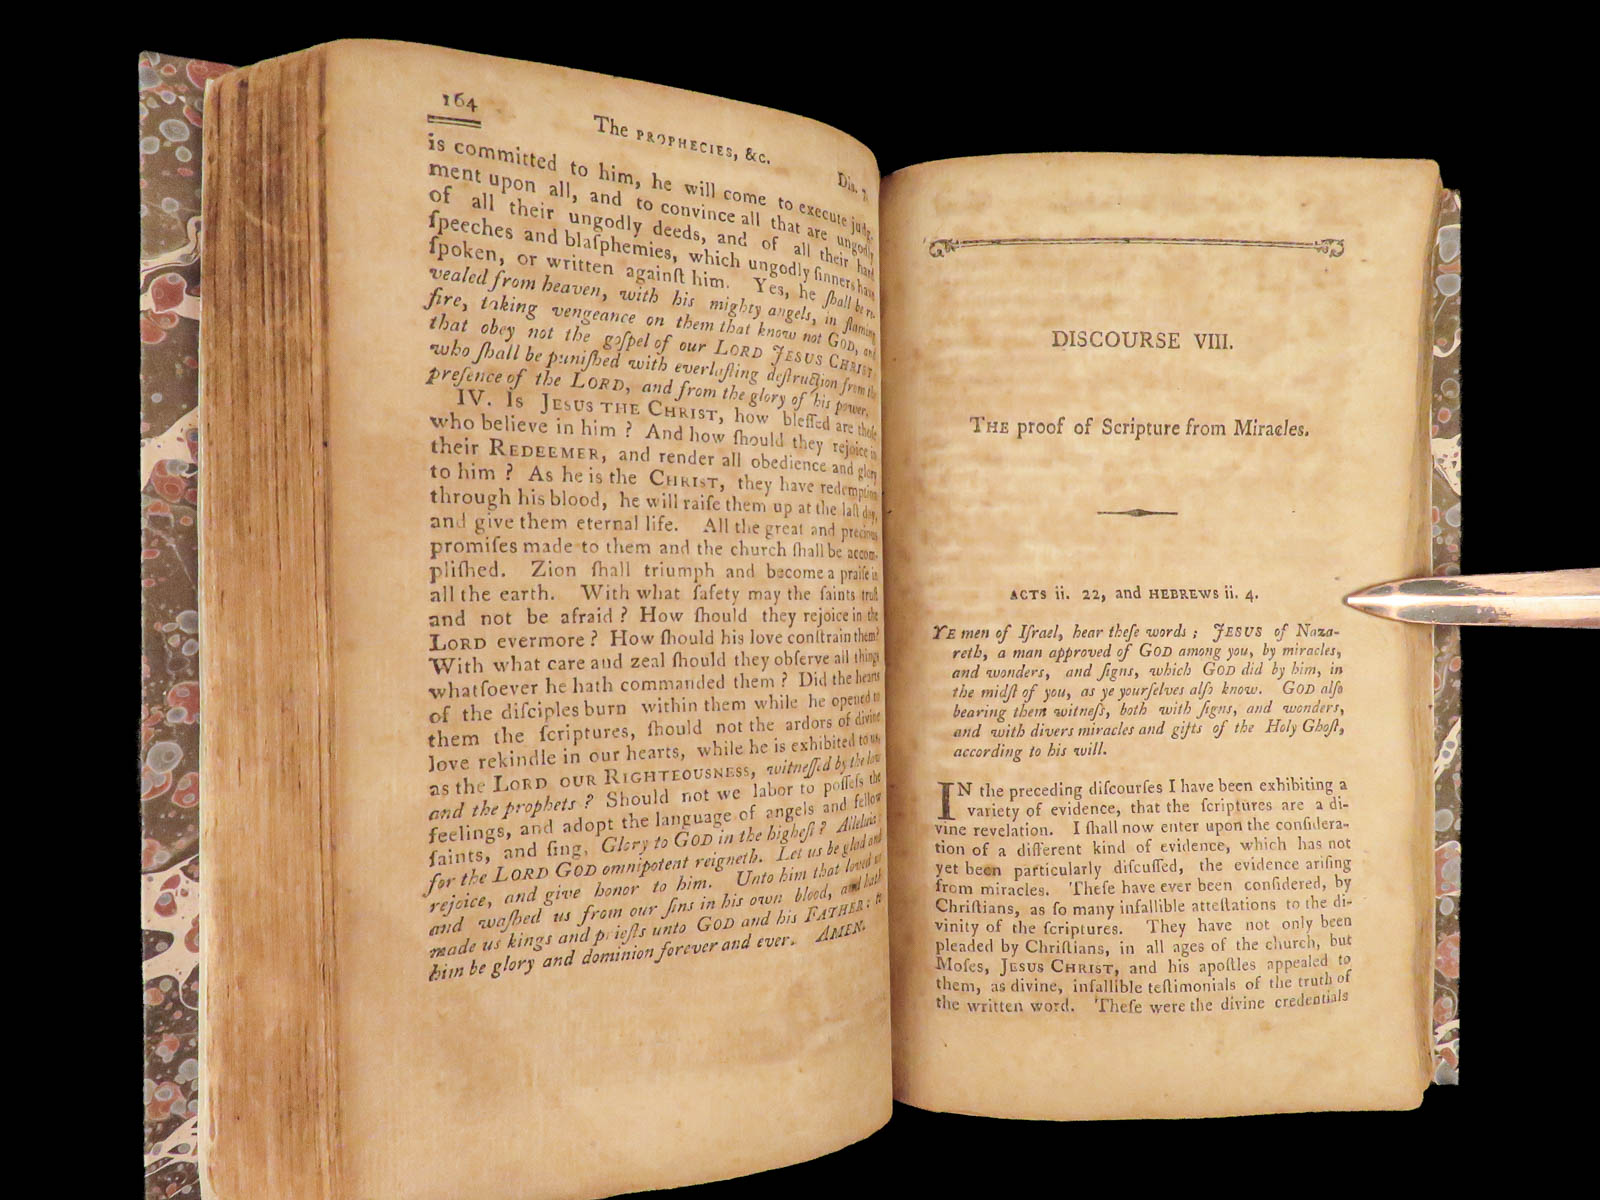 164
The PROPHECIES, &c.
Dis. 7.
is committed to him, he will come to execute judg-
ment upon all, and to convince all that are ungodly
of all their ungodly deeds, and of all their hard
ſpeeches and blaſphemies, which ungodly ſinners have
ſpoken, or written againſt him. Yes, he ſhall be re-
vealed from heaven, with his mighty angels, in flaming
fire, taking vengeance on them that know not GOD, and
that obey not the goſpel of our LORD JESUS CHRIST,
who ſhall be puniſhed with everlaſting deſtruction from the
preſence of the LORD, and from the glory of his power.
IV. Is JESUS THE CHRIST, how bleſſed are thoſe
who believe in him ? And how ſhould they rejoice in
their REDEEMER, and render all obedience and glory
to him ? As he is the CHRIST, they have redemption
through his blood, he will raiſe them up at the laſt day,
and give them eternal life. All the great and precious
promiſes made to them and the church ſhall be accom-
pliſhed. Zion ſhall triumph and become a praiſe in
all the earth. With what ſafety may the ſaints truſt
and not be afraid ? How ſhould they rejoice in the
LORD evermore ? How ſhould his love conſtrain them ?
With what care and zeal ſhould they obſerve all things
whatſoever he hath commanded them ? Did the hearts
of the diſciples burn within them while he opened to
them the ſcriptures, ſhould not the ardors of divine
love rekindle in our hearts, while he is exhibited to us,
as the LORD OUR RIGHTEOUSNESS, witneſſed by the law
and the prophets ? Should not we labor to poſſeſs the
feelings, and adopt the language of angels and fellow
ſaints, and ſing, Glory to GOD in the higheſt ? Alleluia :
for the LORD GOD omnipotent reigneth. Let us be glad and
rejoice, and give honor to him. Unto him that loved us
and waſhed us from our ſins in his own blood, and hath
made us kings and prieſts unto GOD and his FATHER ; to
him be glory and dominion forever and ever. AMEN.
DISCOURSE VIII.
THE proof of Scripture from Miracles.
ACTS ii. 22, and HEBREWS ii. 4.
YE men of Iſrael, hear theſe words ; JESUS of Naza-
reth, a man approved of GOD among you, by miracles,
and wonders, and ſigns, which GOD did by him, in
the midſt of you, as ye yourſelves alſo know. GOD alſo
bearing them witneſs, both with ſigns, and wonders,
and with divers miracles and gifts of the Holy Ghoſt,
according to his will.
IN the preceding diſcourſes I have been exhibiting a
variety of evidence, that the ſcriptures are a di-
vine revelation. I ſhall now enter upon the conſidera-
tion of a different kind of evidence, which has not
yet been particularly diſcuſſed, the evidence ariſing
from miracles. Theſe have ever been conſidered, by
Chriſtians, as ſo many infallible atteſtations to the di-
vinity of the ſcriptures. They have not only been
pleaded by Chriſtians, in all ages of the church, but
Moſes, JESUS CHRIST, and his apoſtles appealed to
them, as divine, infallible teſtimonials of the truth of
the written word. Theſe were the divine credentials